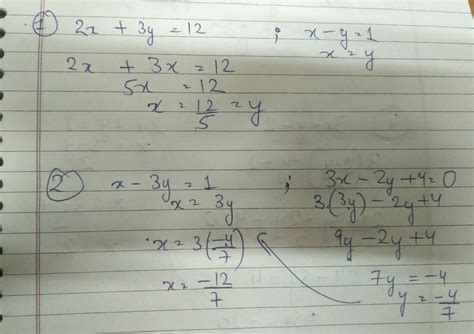 ① 2x + 3y = 12 ; x - y = 1
x = y
2x + 3x = 12
5x = 12
x = 12/5 = y
② x - 3y = 1 ; 3x - 2y + 4 = 0
x = 3y 3(3y) - 2y + 4
x = 3(-4/7) 9y - 2y + 4
7y = -4
x = -12/7 y = -4/7